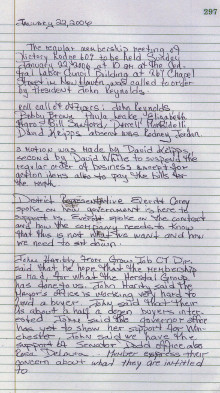 297
January 22, 2006
The regular membership meeting of
Victory Lodge 609 to be held Sunday
January 22, 2006 at 10 am at the Cen-
tral Labor Council Building at 267 Chapel
Street in New Haven was called to order
by President John Reynolds.
roll call of officers: John Reynolds,
Bobby Brant
Bill Sanford,
David Kripps absent was Rodney Jordan
A motion was made by David Kripps,
second by David White to suspend the
regular order of business except for
action items also to pay the bills for
the month.
District Representative Everett Corey
spoke on how Government is here in
support Everett spoke on the contract
and how the company needs to know
that this is not what we want and how
we need to
John Harity from Grow Job CT Dir.
said that he hope that the membership
is for what the
has done to us. John Harity said the
Mayor's office is working very hard to
find a buyer. John said that their
is about a half a dozen buyers inter-
ested. John said the governor office
has yet to show her support for Win-
chester. John said we have the
support of Senator Dodd office, also
Rosa DeLauro. Member express their
concern about what they are intitled
to